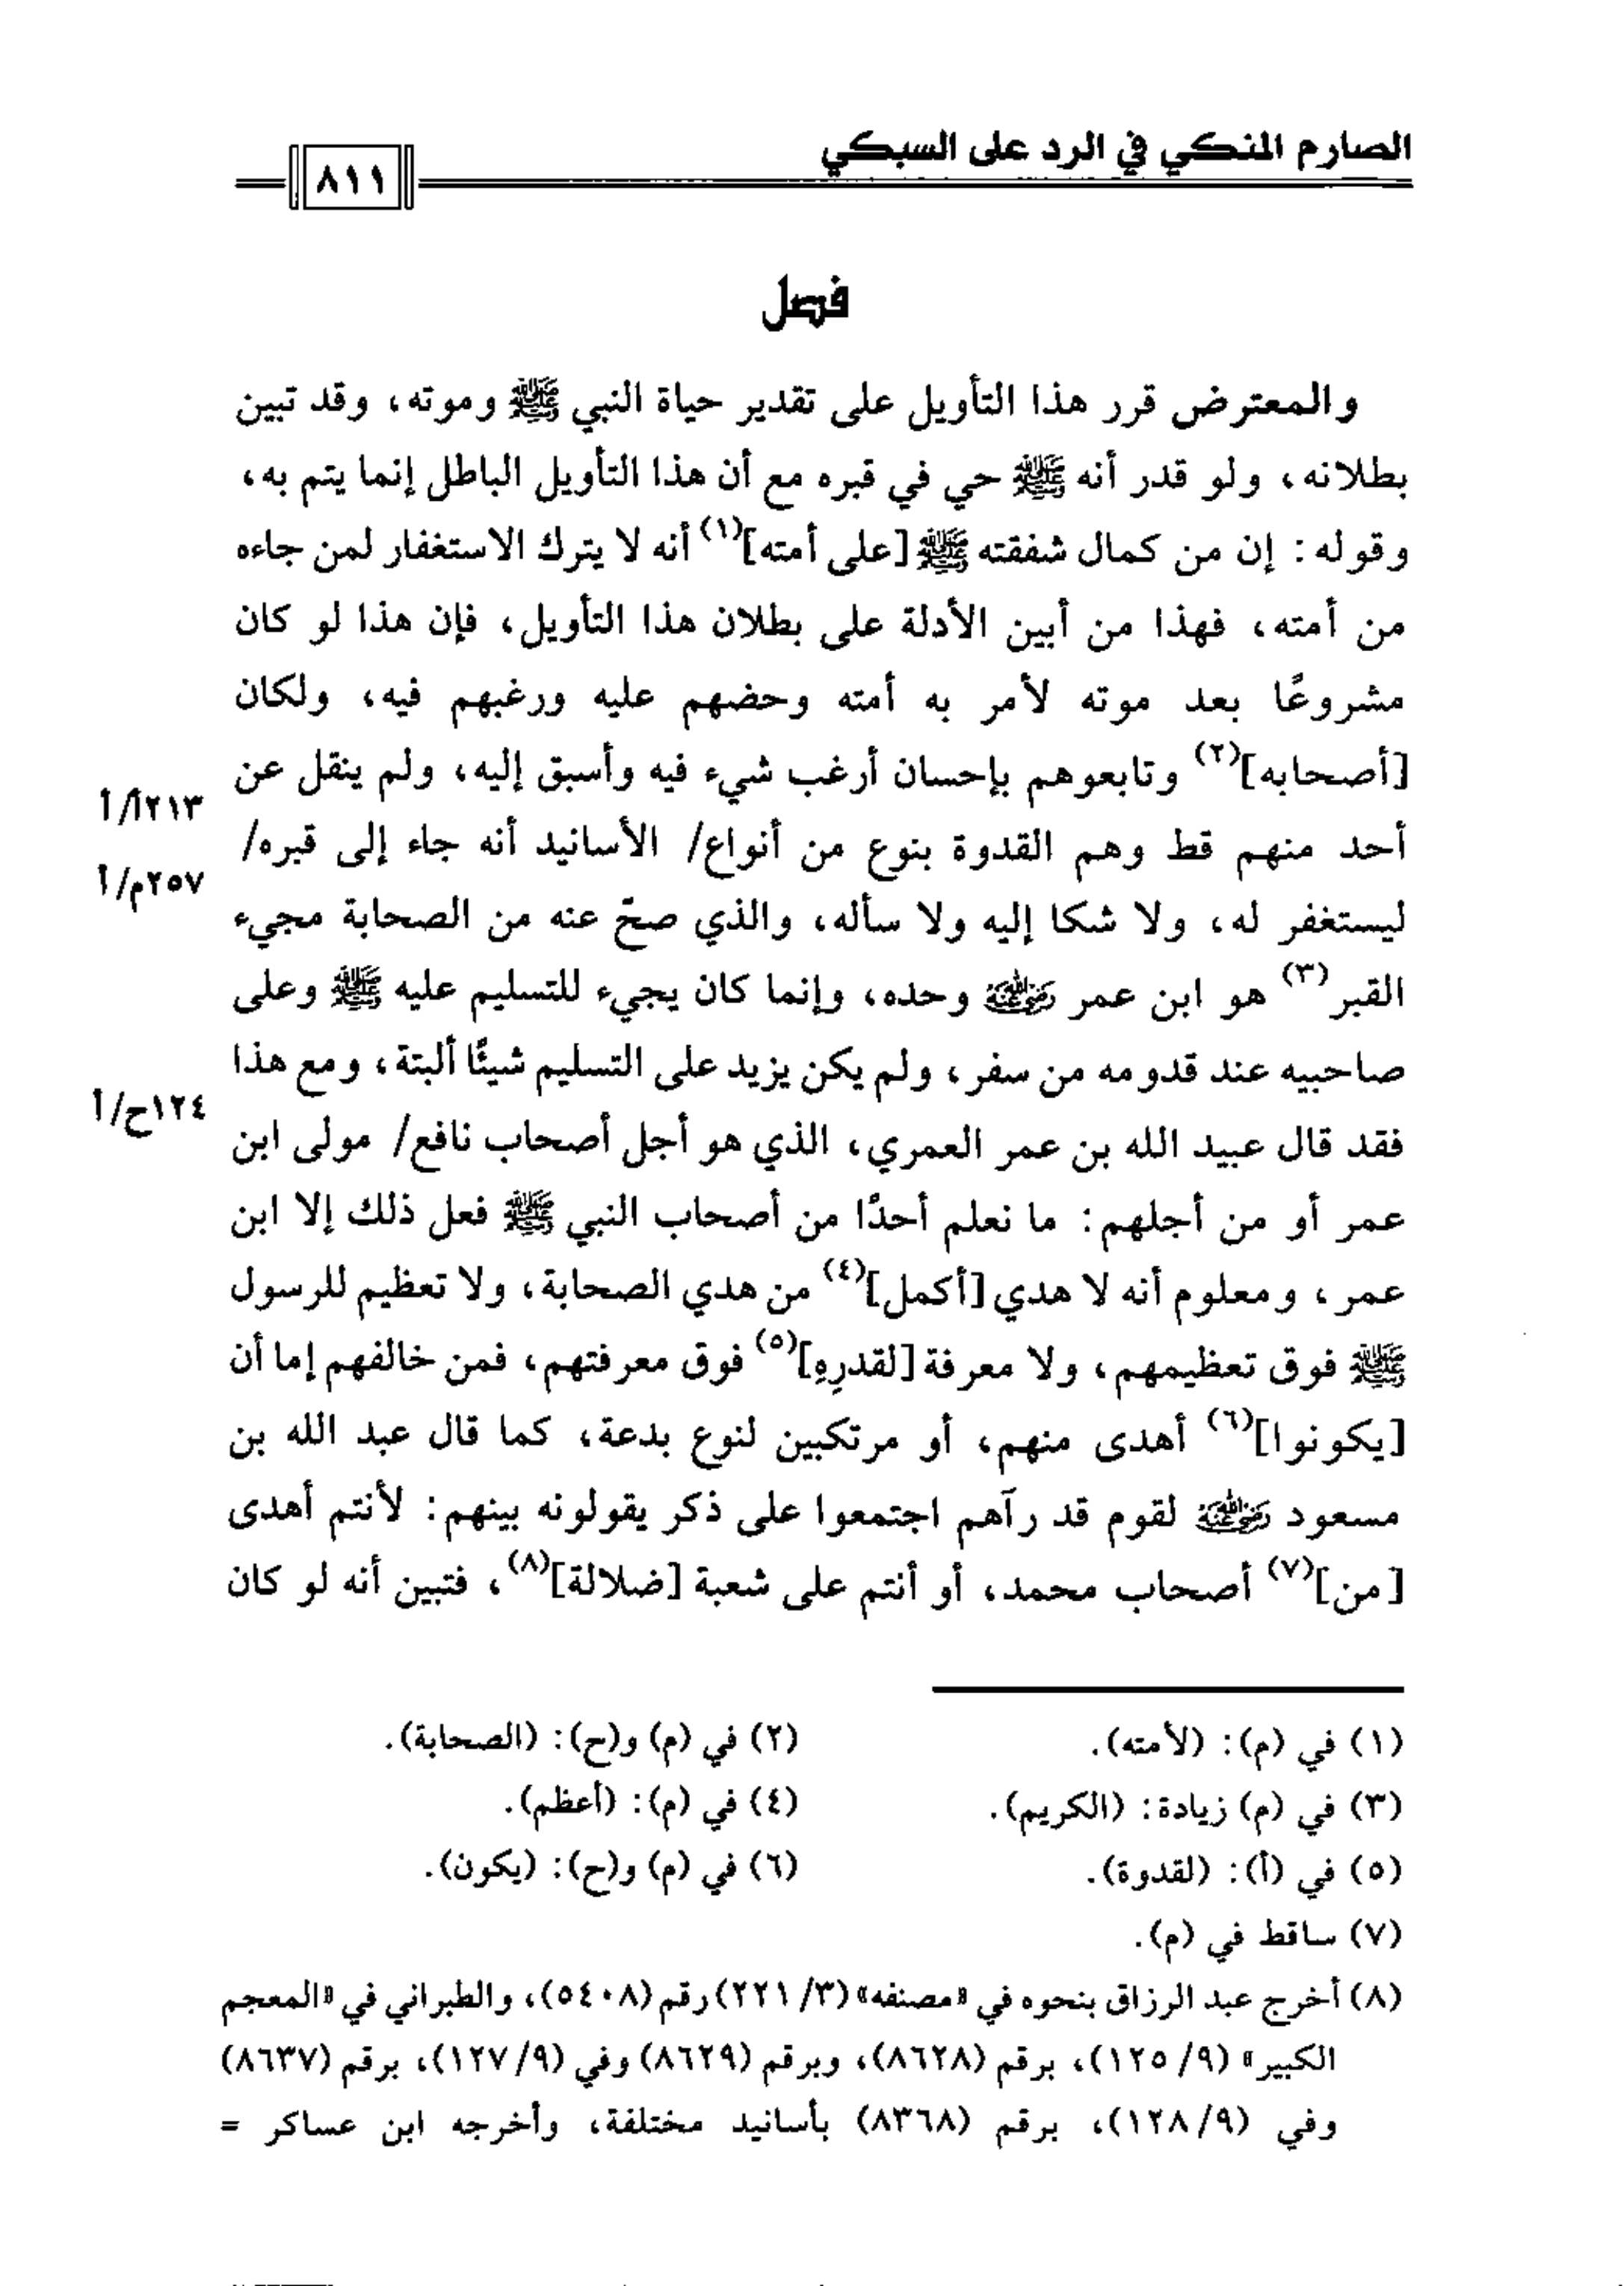 الصارم المنكي في الرد على السبكي
٨١١
فصل
والمعترض قرر هذا التأويل على تقدير حياة النبي ﷺ وموته، وقد تبين
بطلانه، ولو قدر أنه ﷺ حي في قبره مع أن هذا التأويل الباطل إنما يتم به،
وقوله: إن من كمال شفقته ﷺ [على أمته](١) أنه لا يترك الاستغفار لمن جاءه
من أمته، فهذا من أبين الأدلة على بطلان هذا التأويل، فإن هذا لو كان
مشروعًا بعد موته لأمر به أمته وحضهم عليه ورغبهم فيه، ولكان
[أصحابه](٢) وتابعوهم بإحسان أرغب شيء فيه وأسبق إليه، ولم ينقل عن
٢١٣أ/أ
أحد منهم قط وهم القدوة بنوع من أنواع/ الأسانيد أنه جاء إلى قبره/
٢٥٧م/أ
ليستغفر له، ولا شكا إليه ولا سأله، والذي صحّ عنه من الصحابة مجيء
القبر(٣) هو ابن عمر رضي الله عنه وحده، وإنما كان يجيء للتسليم عليه ﷺ وعلى
صاحبيه عند قدومه من سفر، ولم يكن يزيد على التسليم شيئًا ألبتة، ومع هذا
١٢٤ح/أ
فقد قال عبيد الله بن عمر العمري، الذي هو أجل أصحاب نافع/ مولى ابن
عمر أو من أجلهم: ما نعلم أحدًا من أصحاب النبي ﷺ فعل ذلك إلا ابن
عمر، ومعلوم أنه لا هدي [أكمل](٤) من هدي الصحابة، ولا تعظيم للرسول
ﷺ فوق تعظيمهم، ولا معرفة [لقدرِهِ](٥) فوق معرفتهم، فمن خالفهم إما أن
[يكونوا](٦) أهدى منهم، أو مرتكبين لنوع بدعة، كما قال عبد الله بن
مسعود رضي الله عنه لقوم قد رآهم اجتمعوا على ذكر يقولونه بينهم: لأنتم أهدى
[من](٧) أصحاب محمد، أو أنتم على شعبة [ضلالة](٨)، فتبين أنه لو كان
(١) في (م): (لأمته).
(٢) في (م) و(ح): (الصحابة).
(٣) في (م) زيادة: (الكريم).
(٤) في (م): (أعظم).
(٥) في (أ): (لقدوة).
(٦) في (م) و(ح): (يكون).
(٧) ساقط في (م).
(٨) أخرج عبد الرزاق بنحوه في «مصنفه» (٣/ ٢٢١) رقم (٥٤٠٨)، والطبراني في «المعجم
الكبير» (٩/ ١٢٥)، برقم (٨٦٢٨)، وبرقم (٨٦٢٩) وفي (٩/ ١٢٧)، برقم (٨٦٣٧)
وفي (٩/ ١٢٨)، برقم (٨٣٦٨) بأسانيد مختلفة، وأخرجه ابن عساكر =